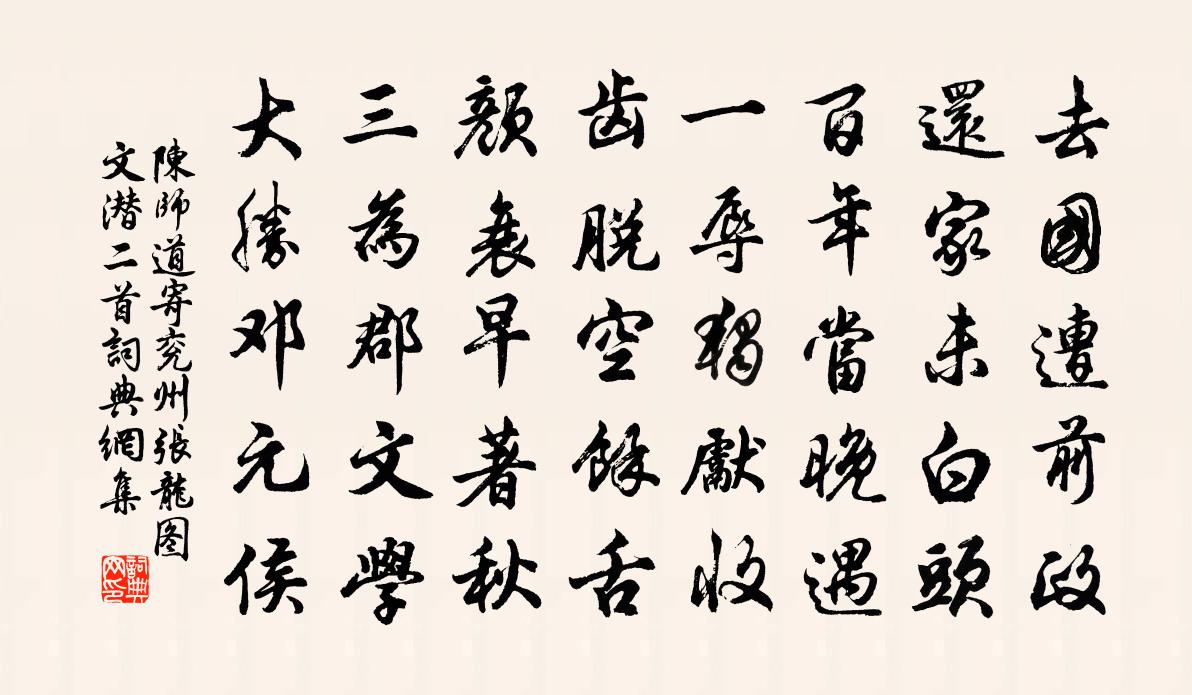 去國遭前政
還家未白頭
百年當晚遇
一辱獨獻收
齒脱空餘舌
顏衰早著秋
三為郡文學
大勝邓元侯
陳師道寄兖州張龍图
文潜二首詞典網集
詞典
网印